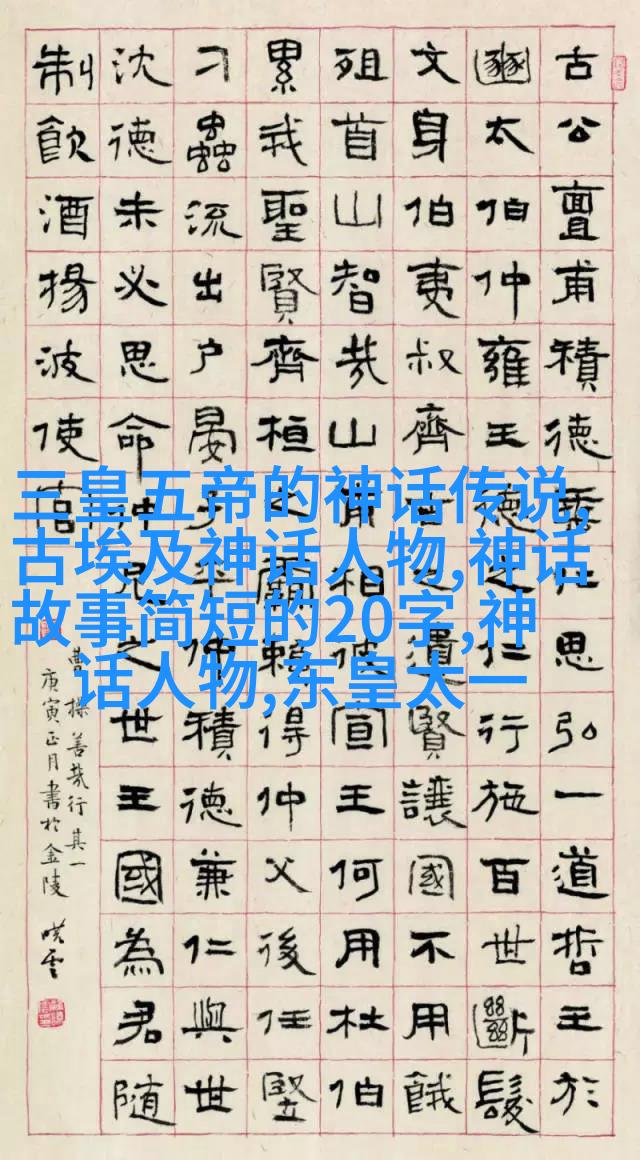 三皇五帝的神话传说,
古埃及神话人物,神话
故事简短的20字,神
话人物,东皇太一
古公亶甫積德垂仁思弘一道哲王於
豳太伯仲雍王德之仁行施百世斷髮
文身伯夷叔齊古之遺賢讓國不用餓
殂首山智哉山甫相彼宣王何用杜伯
累我聖賢齊桓之霸賴得仲父後任豎
刁蟲流出戶晏子平仲積德兼仁與世
沈德未必思命仲尼之世王國為君隨
制飲酒揚波使官
曹操善哉行其一
庚寅正月書於金陵